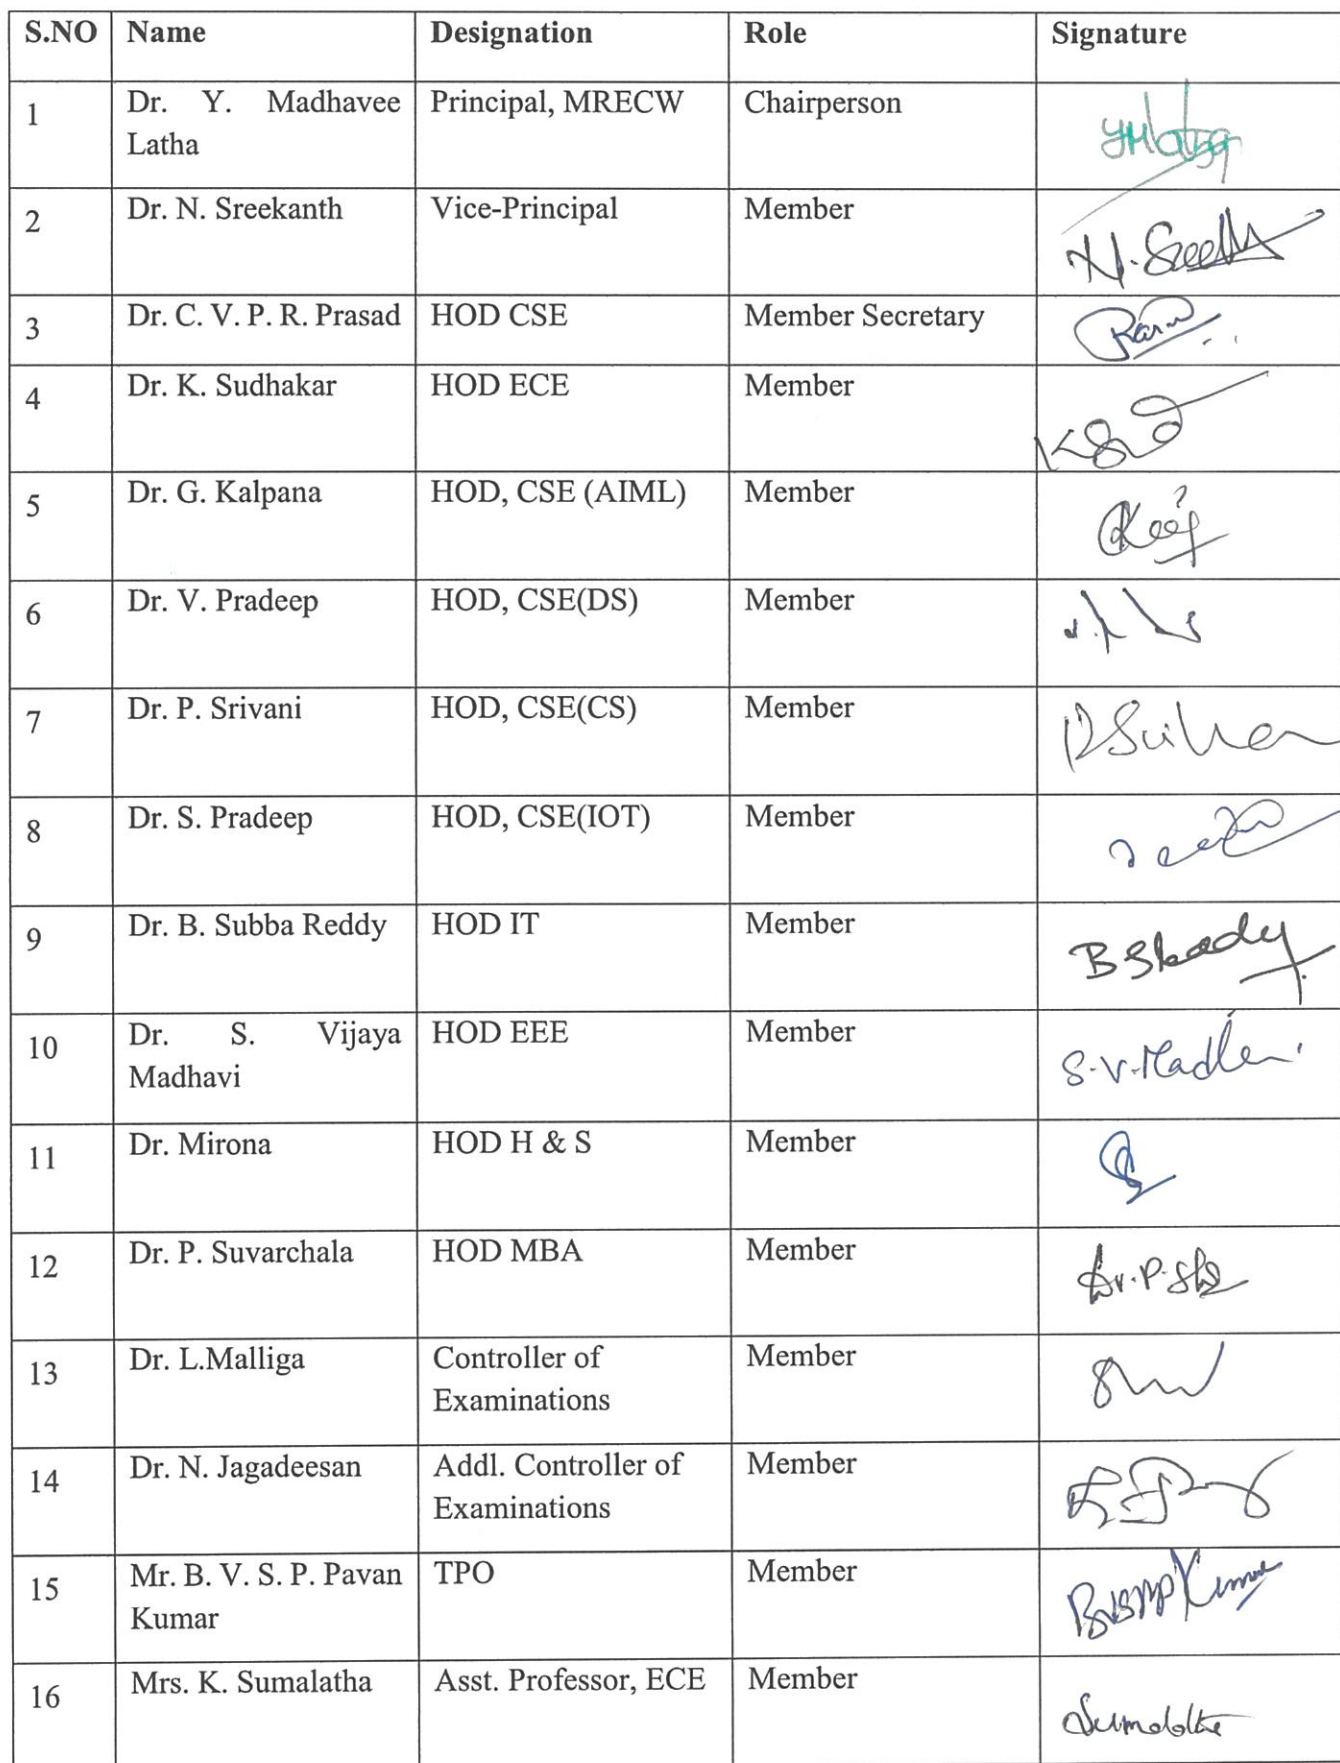 S.NO Name Designation Role Signature
1 Dr. Y. Madhavee Principal, MRECW Chairperson
Latha
2 Dr. N. Sreekanth Vice-Principal Member
N. Sree
3 Dr. C. V. P. R. Prasad HOD CSE Member Secretary
4 Dr. K. Sudhakar HOD ECE Member
5 Dr. G. Kalpana HOD, CSE (AIML) Member
6 Dr. V. Pradeep HOD, CSE(DS) Member
7 Dr. P. Srivani HOD, CSE(CS) Member
8 Dr. S. Pradeep HOD, CSE(IOT) Member
9 Dr. B. Subba Reddy HOD IT Member
10 Dr. S. Vijaya HOD EEE Member
Madhavi
11 Dr. Mirona HOD H & S Member
12 Dr. P. Suvarchala HOD MBA Member
13 Dr. L.Malliga Controller of Member
Examinations
14 Dr. N. Jagadeesan Addl. Controller of Member
Examinations
15 Mr. B. V. S. P. Pavan TPO Member
Kumar
16 Mrs. K. Sumalatha Asst. Professor, ECE Member